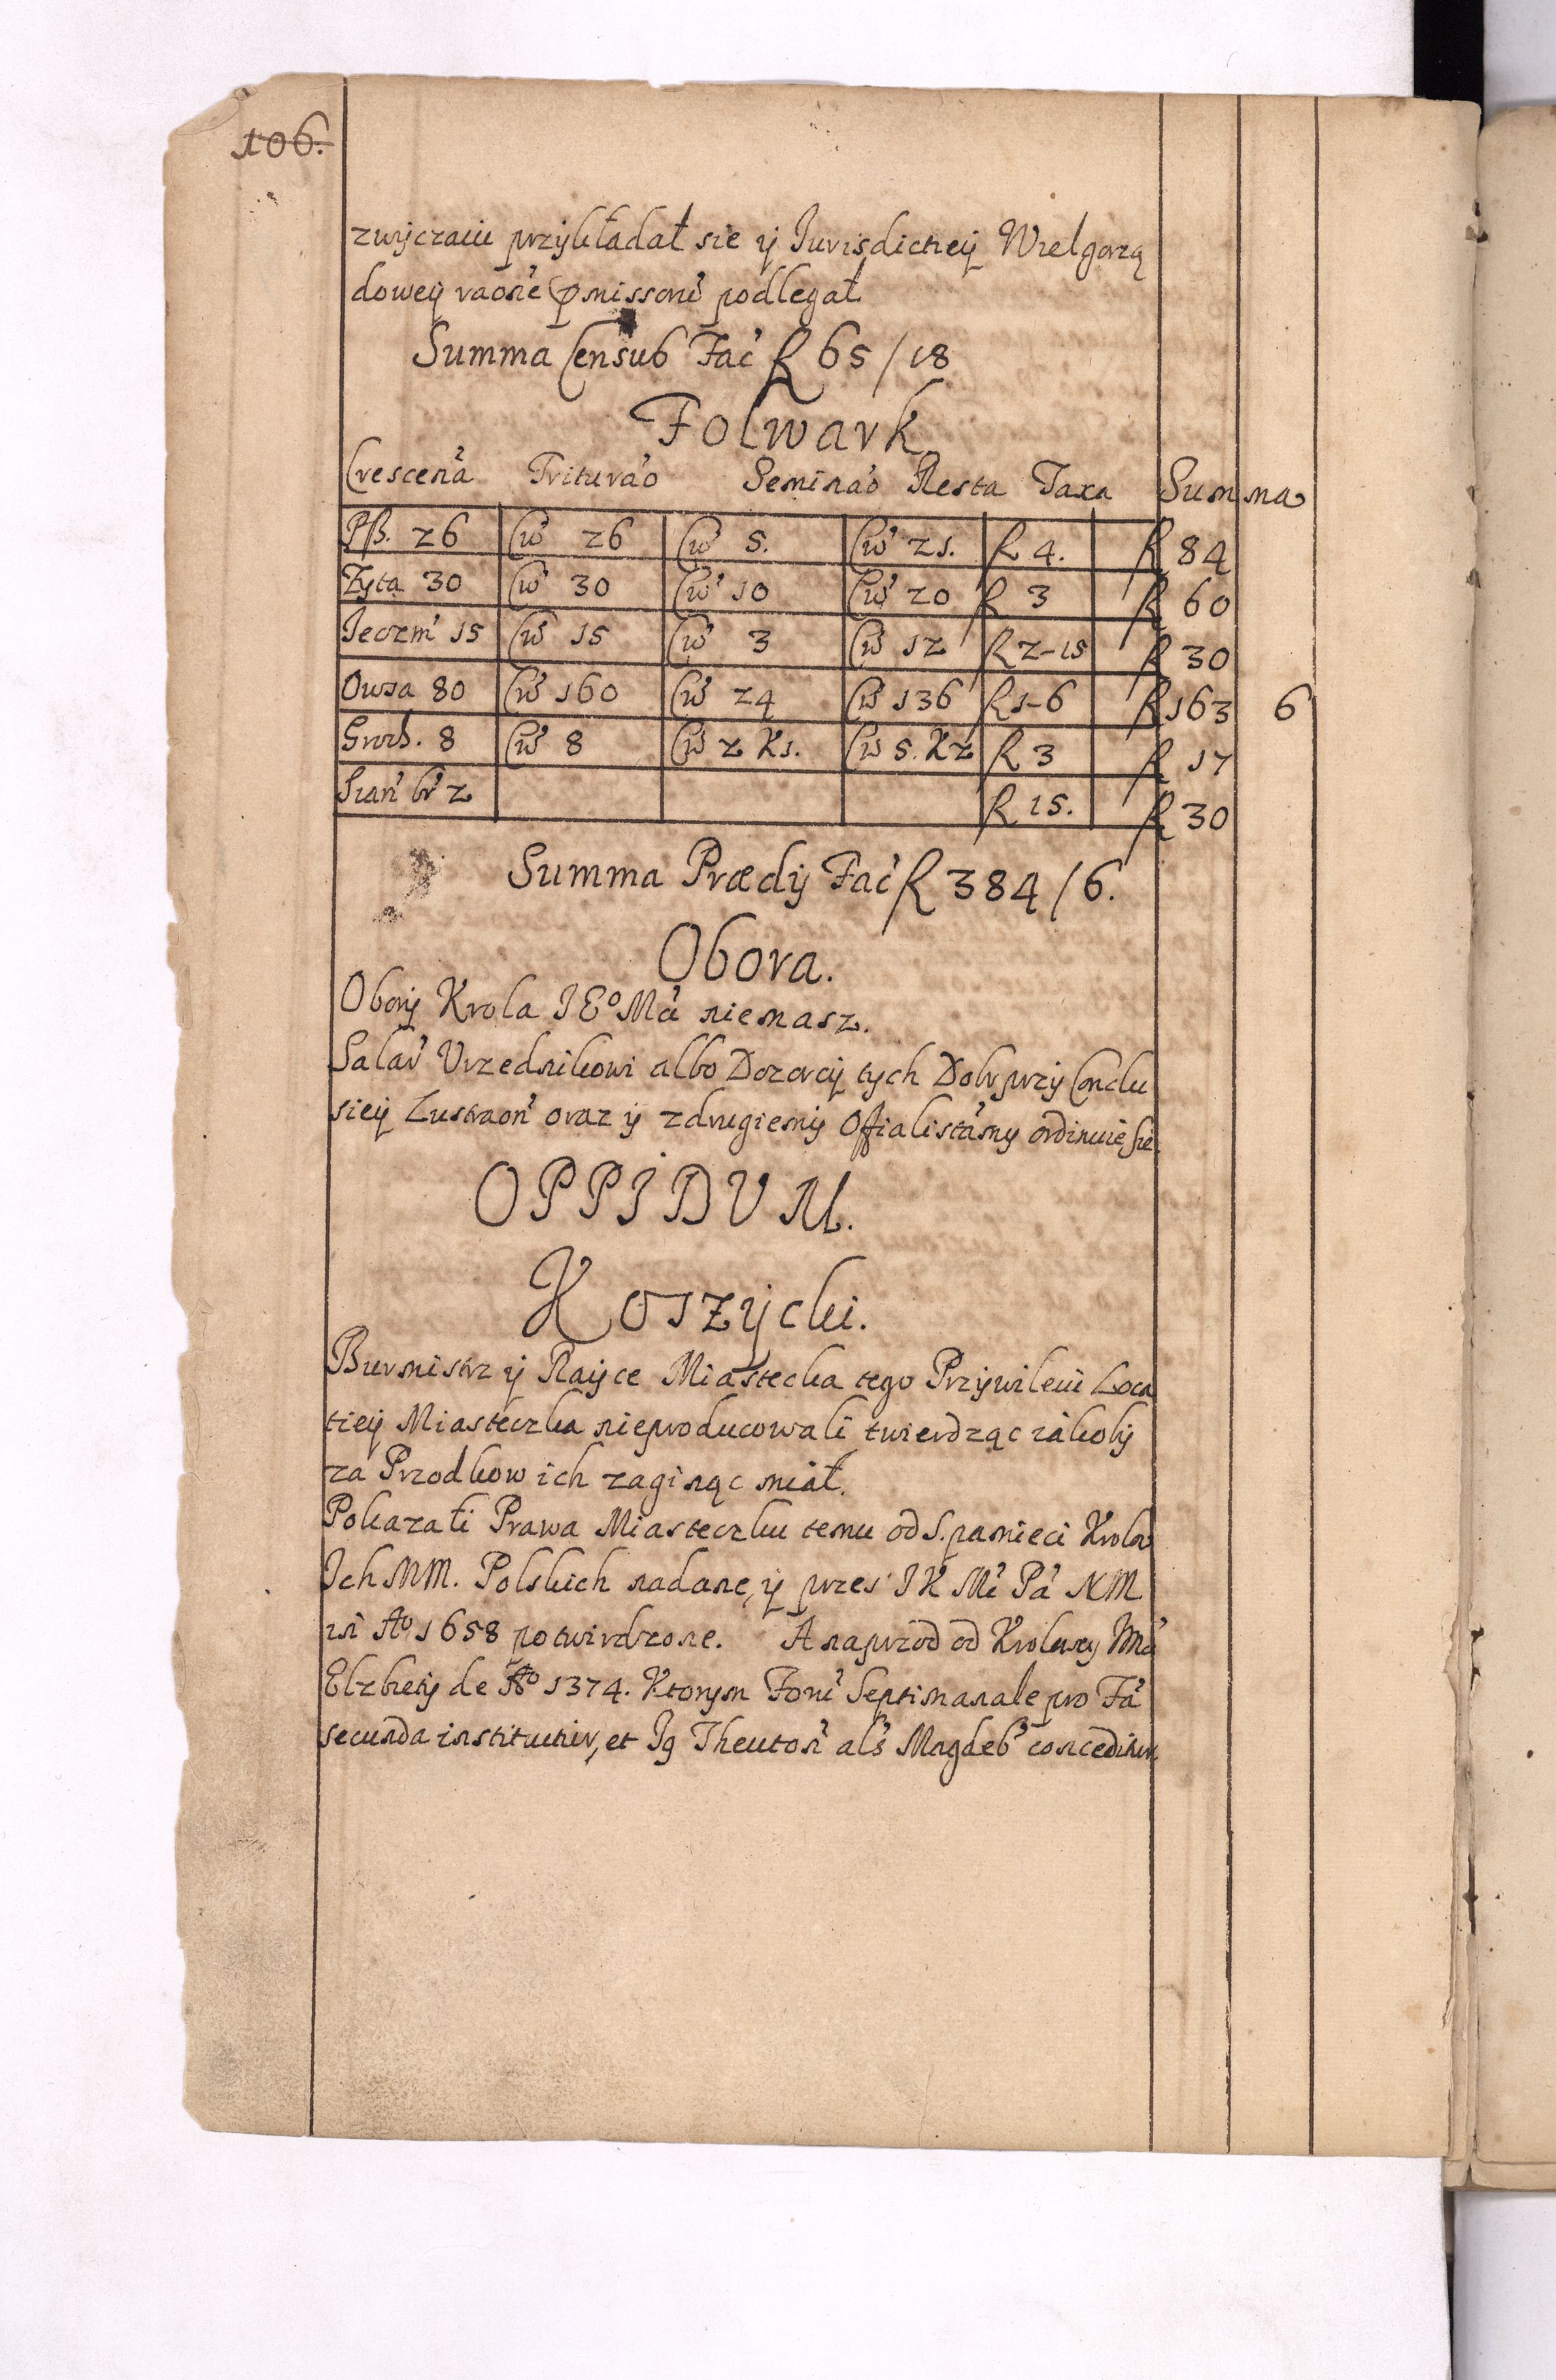 106.
zwÿczaiu przÿkładał sie ÿ Jurisdictieÿ Wielgorzą
doweÿ raōne pmissoru' podlegał
Summa Censub Fac' fl 65 / 18
Folwark
Crescen'a Triturao' Seminao' Resta Taxa Summa
Pß. 26 Cw' 26 Cw' 5. Cw' 21. fl 4. fl 84
Zyta 30 Cw' 30 Cw' 10 Cw' 20 fl 3 fl 60
Jeczm' 15 Cw' 15 Cw' 3 Cw' 12 fl 2-15 fl 30
Owsa 80 Cw' 160 Cw' 24 Cw' 136 fl 1-6 fl 163 6
Groch. 8 Cw' 8 Cw' 2 K1. Cw 5. K2 fl 3 fl 17
Sian' br' 2 fl 15. fl 30
Summa Prædÿ Fac' fl 384 / 6.
Obora.
Oborÿ Krola JEº Mci niemasz.
Salar' Urzednikowi albo Dozorcÿ tych Dobr przÿ Conclu
sieÿ Lustraon' oraz ÿ zdrugiemÿ Offialista'my ordinuie sie.
OPPIDUM.
Koszÿcki.
Burmistrz ÿ Rayce Miastecka tego Przÿwileiu Loca
tieÿ Miasteczka nieproducowali twierdząc iakobÿ
za Przodkow ich zaginąc miał.
Pokazali Prawa Miasteczku temu od S. pamieci Krolow
Ich MM. Polskich nadane, ÿ przes JK Mci Pa' NM
in Aº 1658 potwirdzone. A naprzod od Krolowy JMci
Elzbietÿ de Aº 1374. Ktorym Foru' Septimanale pro Fa'
secunda instituitur, et Jg Theuton' als' Magdeb' conceditur.